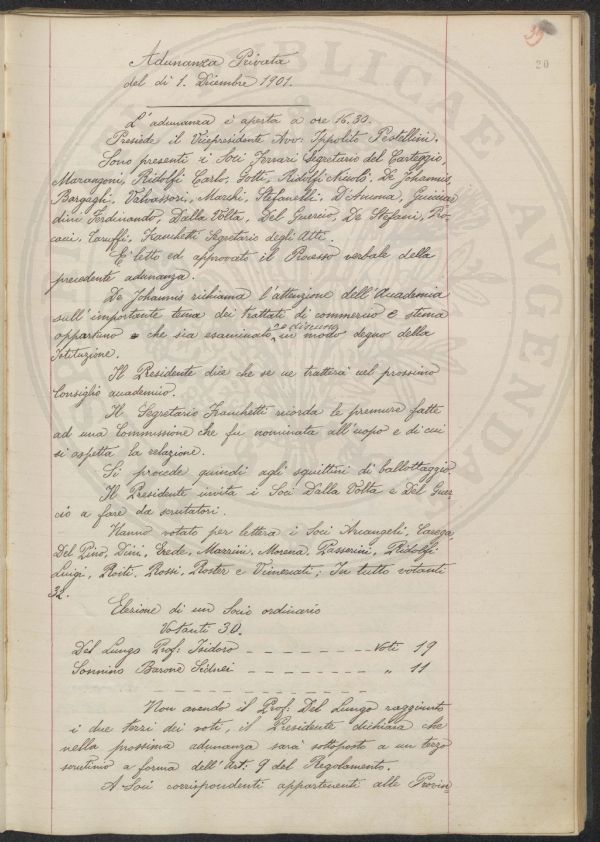 39
20
Adunanza Privata
del dì 1. Dicembre 1901.
L'adunanza è aperta a ore 16.30.
Presiede il Vicepresidente Avv: Ippolito Pestellini.
Sono presenti i Soci Ferrari Segretario del Carteggio,
Marangoni, Ridolfi Carlo, Gotti, Ridolfi Niccolò, De Johannis,
Bargagli, Valvassori, Marchi, Stefanelli, D'Ancona, Guicciar
dini Ferdinando, Dalla Volta, Del Guercio, De Stefani, Fro-
cacci, Taruffi, Franchetti Segretario degli Atti.
E' letto ed approvato il Processo verbale della
precedente adunanza.
De Johannis richiama l'attenzione dell'Accademia
sull'importante tema dei trattati di commercio e stima
opportuno che sia esaminato e discusso in modo degno della
Istituzione.
Il Presidente dice che se ne tratterà nel prossimo
Consiglio accademico.
Il Segretario Franchetti ricorda le premure fatte
ad una Commissione che fu nominata all'uopo e di cui
si aspetta la relazione.
Si procede quindi agli squittini di ballottaggio
Il Presidente invita i Soci Dalla Volta e Del Guer
cio a fare da scrutatori.
Hanno votato per lettera i Soci Arcangeli, Carega,
Del Pino, Dini, Erede, Mazzini, Morena, Passerini, Ridolfi
Luigi, Roiti, Rossi, Roster e Vimercati; In tutto votanti
32.
Elezione di un Socio ordinario
Votanti 30.
Del Lungo Prof: Isidoro - - - - - - - - - Voti 19
Sonnino Barone Sidnei - - - - - - - - - " 11
Non avendo il Prof: Del Lungo raggiunto
i due terzi dei voti, il Presidente dichiara che
nella prossima adunanza sarà sottoposto a un terzo
scrutinio a forma dell'Art: 9 del Regolamento.
A Soci corrispondenti appartenenti alle Provin